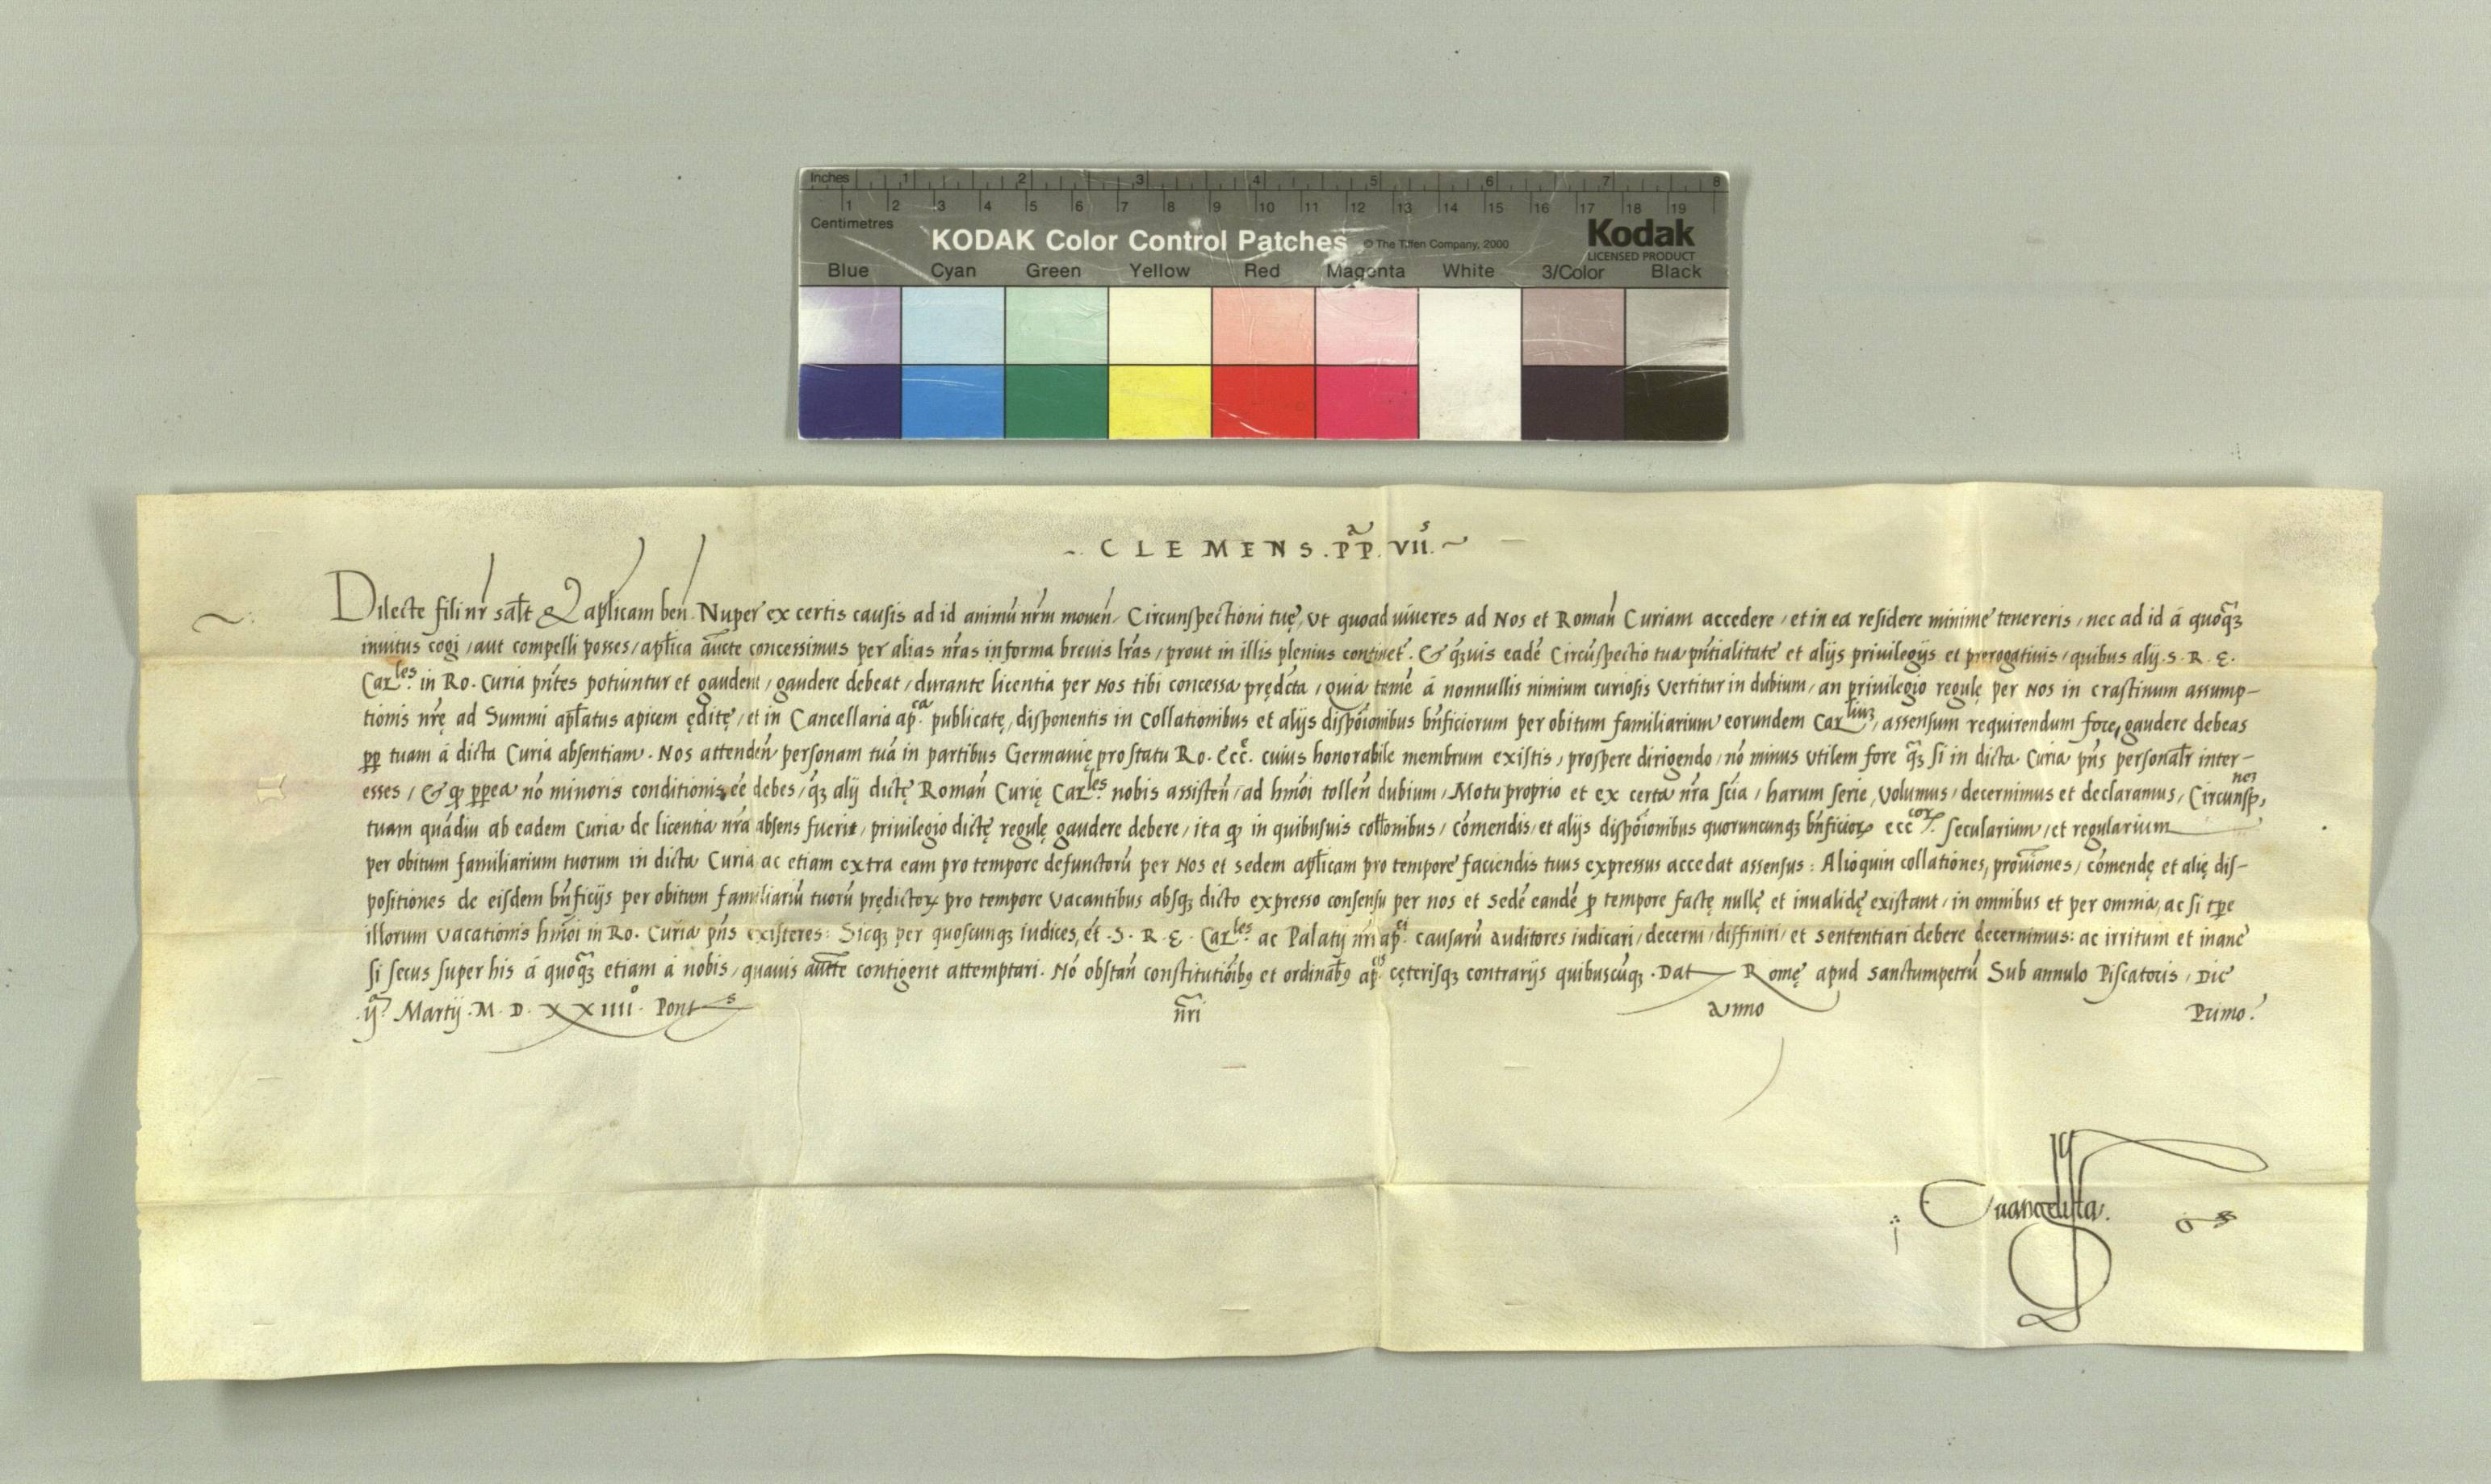 Inches 1 2 3 4 5 6 7 8
1 2 3 4 5 6 7 8 9 10 11 12 13 14 15 16 17 18 19
Centimetres
KODAK Color Control Patches © The Tiffen Company, 2000 Kodak
LICENSED PRODUCT
Blue Cyan Green Yellow Red Magenta White 3/Color Black
CLEMENS . P̃P. VII.
Dilecte fili nr̃ salt̃ & aplicam ben̄. Nuper ex certis causis ad id animū nrm̄ mouen̄. Circunspectioni tuę, ut quoad uiueres ad Nos et Roman̄ Curiam accedere / et in ea residere minime tenereris / nec ad id á quoq̃ꝫ
inuitus cogi / aut compelli posses / aplica aucte concessimus per alias nr̃as in forma breuis lr̃as / prout in illis plenius continet̃. & q̃ꝫuis eadē Circūspectio tua pñtialitate et alijs priuilegijs et prerogatiuis / quibus alij .S. R. E.
Carles in Ro. Curia pñtes potiuntur et gaudent / gaudere debeat / durante licentia per Nos tibi concessa prędcta / quia tamē á nonnullis nimium curiosis vertitur in dubium / an priuilegio regulę per Nos in crastinum assump-
tionis nr̃ę ad Summi apl̃atus apicem ęditę / et in Cancellaria ap.ca publicatę, disponentis in Collationibus et alijs dispõionibus bñficiorum per obitum familiarium eorundem Carliuꝫ, assensum requirendum fore, gaudere debeas
pp̃ tuam á dicta Curia absentiam. Nos attenden̄ personam tuā in partibus Germanię pro statu Ro. Ecc.e cuius honorabile membrum existis, prospere dirigendo / nō minus utilem fore q̃ꝫ si in dicta Curia pñs personalr̃ inter-
esses / & ꝙ ꝓpea nō minoris conditionis ēē debes / q̃ꝫ alij dictę Roman̄ Curię Carles nobis assisten̄ / ad hmõi tollen̄ dubium / Motu proprio et ex certa nr̃a scīa / harum serie, Volumus / decernimus et declaramus / Circunsp.neꝫ
tuam quādiu ab eadem Curia de licentia nr̃a absens fueris / priuilegio dictę regulę gaudere debere / ita ꝙ in quibusuis collõnibus / cōmendis / et alijs dispõionibus quoruncunqꝫ bñficioꝝ ecc.coꝝ secularium / et regularium
per obitum familiarium tuorum in dicta Curia ac etiam extra eam pro tempore defunctorū per Nos et sedem aplicam pro tempore faciendis tuus expressus accedat assensus : Alioquin collationes, prouiõnes / cōmendę et alię dis-
positiones de eisdem bñficijs per obitum familiariū tuorū prędictoꝝ pro tempore vacantibus absqꝫ dicto expresso consensu per nos et sedē eandē ꝓ tempore factę nullę et inualidę existant / in omnibus et per omnia, ac si tꝑe
illorum vacationis hmõi in Ro. Curia pñs existeres : Sicqꝫ per quoscunqꝫ iudices, et .S. R. E. Carles ac Palatij nr̃i ap.ci causarū auditores iudicari / decerni / diffiniri / et sententiari debere decernimus : ac irritum et inane
si secus super his á quoq̃ꝫ etiam á nobis / quauis aucte contigerit attemptari. Nō obstan̄ constitutiõibꝰ et ordinatibꝰ ap.cis cęterisqꝫ contrarijs quibuscūqꝫ. Dat Romę apud sanctumpetrū Sub annulo Piscatoris / Die
.ija Martij .M. D. XXIIIIo. Pont.s nr̃i anno Primo.
Euangelista.